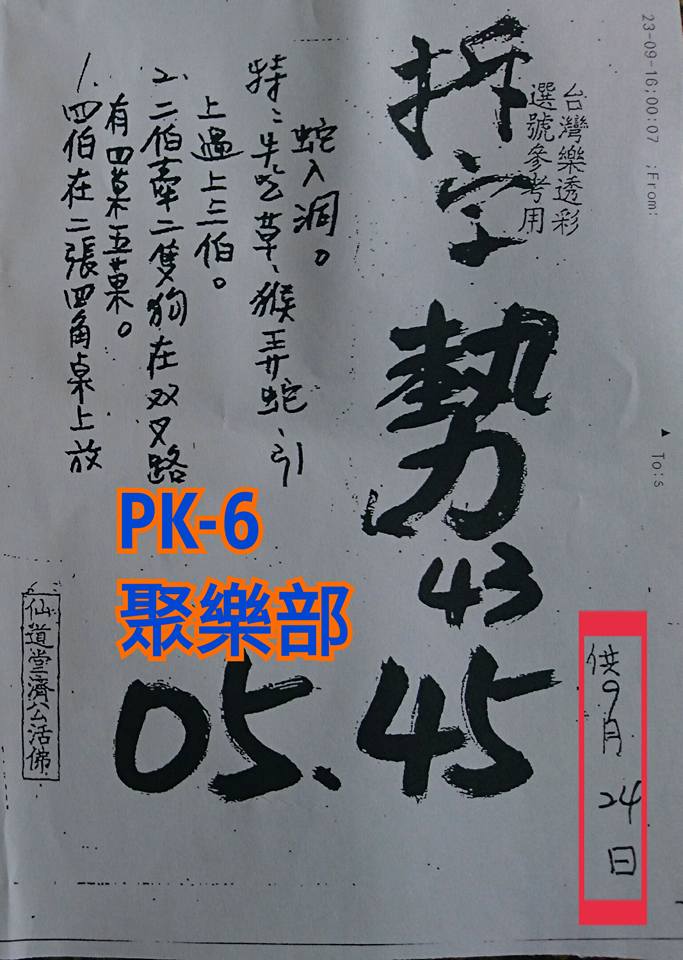 23-09-16;00:07 ;From:
To:s
台灣樂透彩
選號參考用
拆字勢
43
05.45
1、四伯在二張四角桌上放
有四菓五菓。
2、二伯牽二隻狗在双叉路
上過上三伯。
特:牛吃草、猴弄蛇、引
蛇入洞。
PK-6
聚樂部
仙道堂濟公活佛
供9月24日